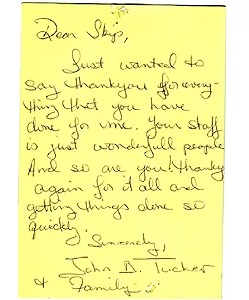 Dear Skip,
Just wanted to
say thankyou for every-
thing that you have
done for me. Your staff
is just wonderfull people
And so are you! thanky
again for it all and
getting things done so
quickly.
Sincerely,
John B. Tucker
& Family